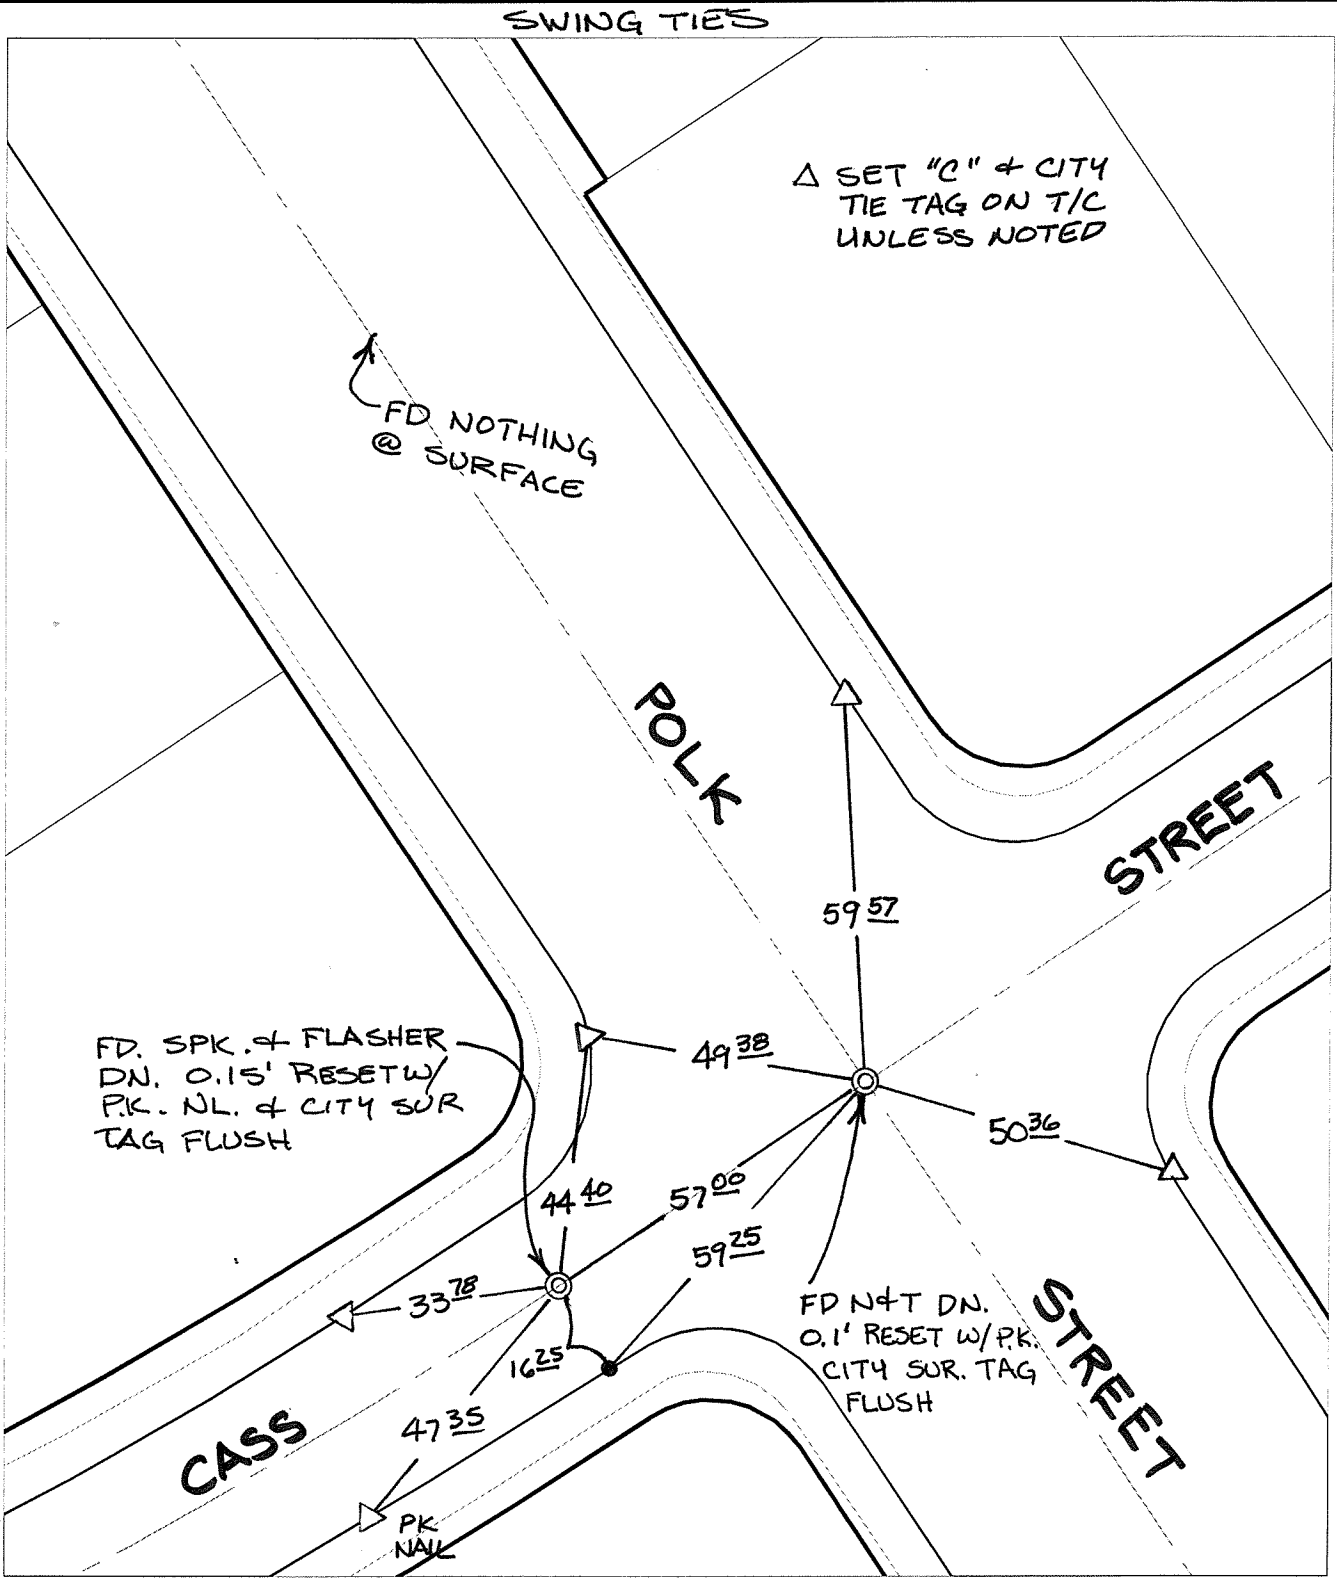 SWING TIES
△ SET "C" & CITY
TIE TAG ON T/C
UNLESS NOTED
FD NOTHING
@ SURFACE
POLK
STREET
59 57
49 38
50 36
FD. SPK. & FLASHER
DN. 0.15' RESET W/
P.K. NL. & CITY SUR
TAG FLUSH
44 40
57 00
59 25
33 78
16 25
47 35
FD N&T DN.
0.1' RESET W/P.K.
CITY SUR. TAG
FLUSH
STREET
CASS
PK
NAIL